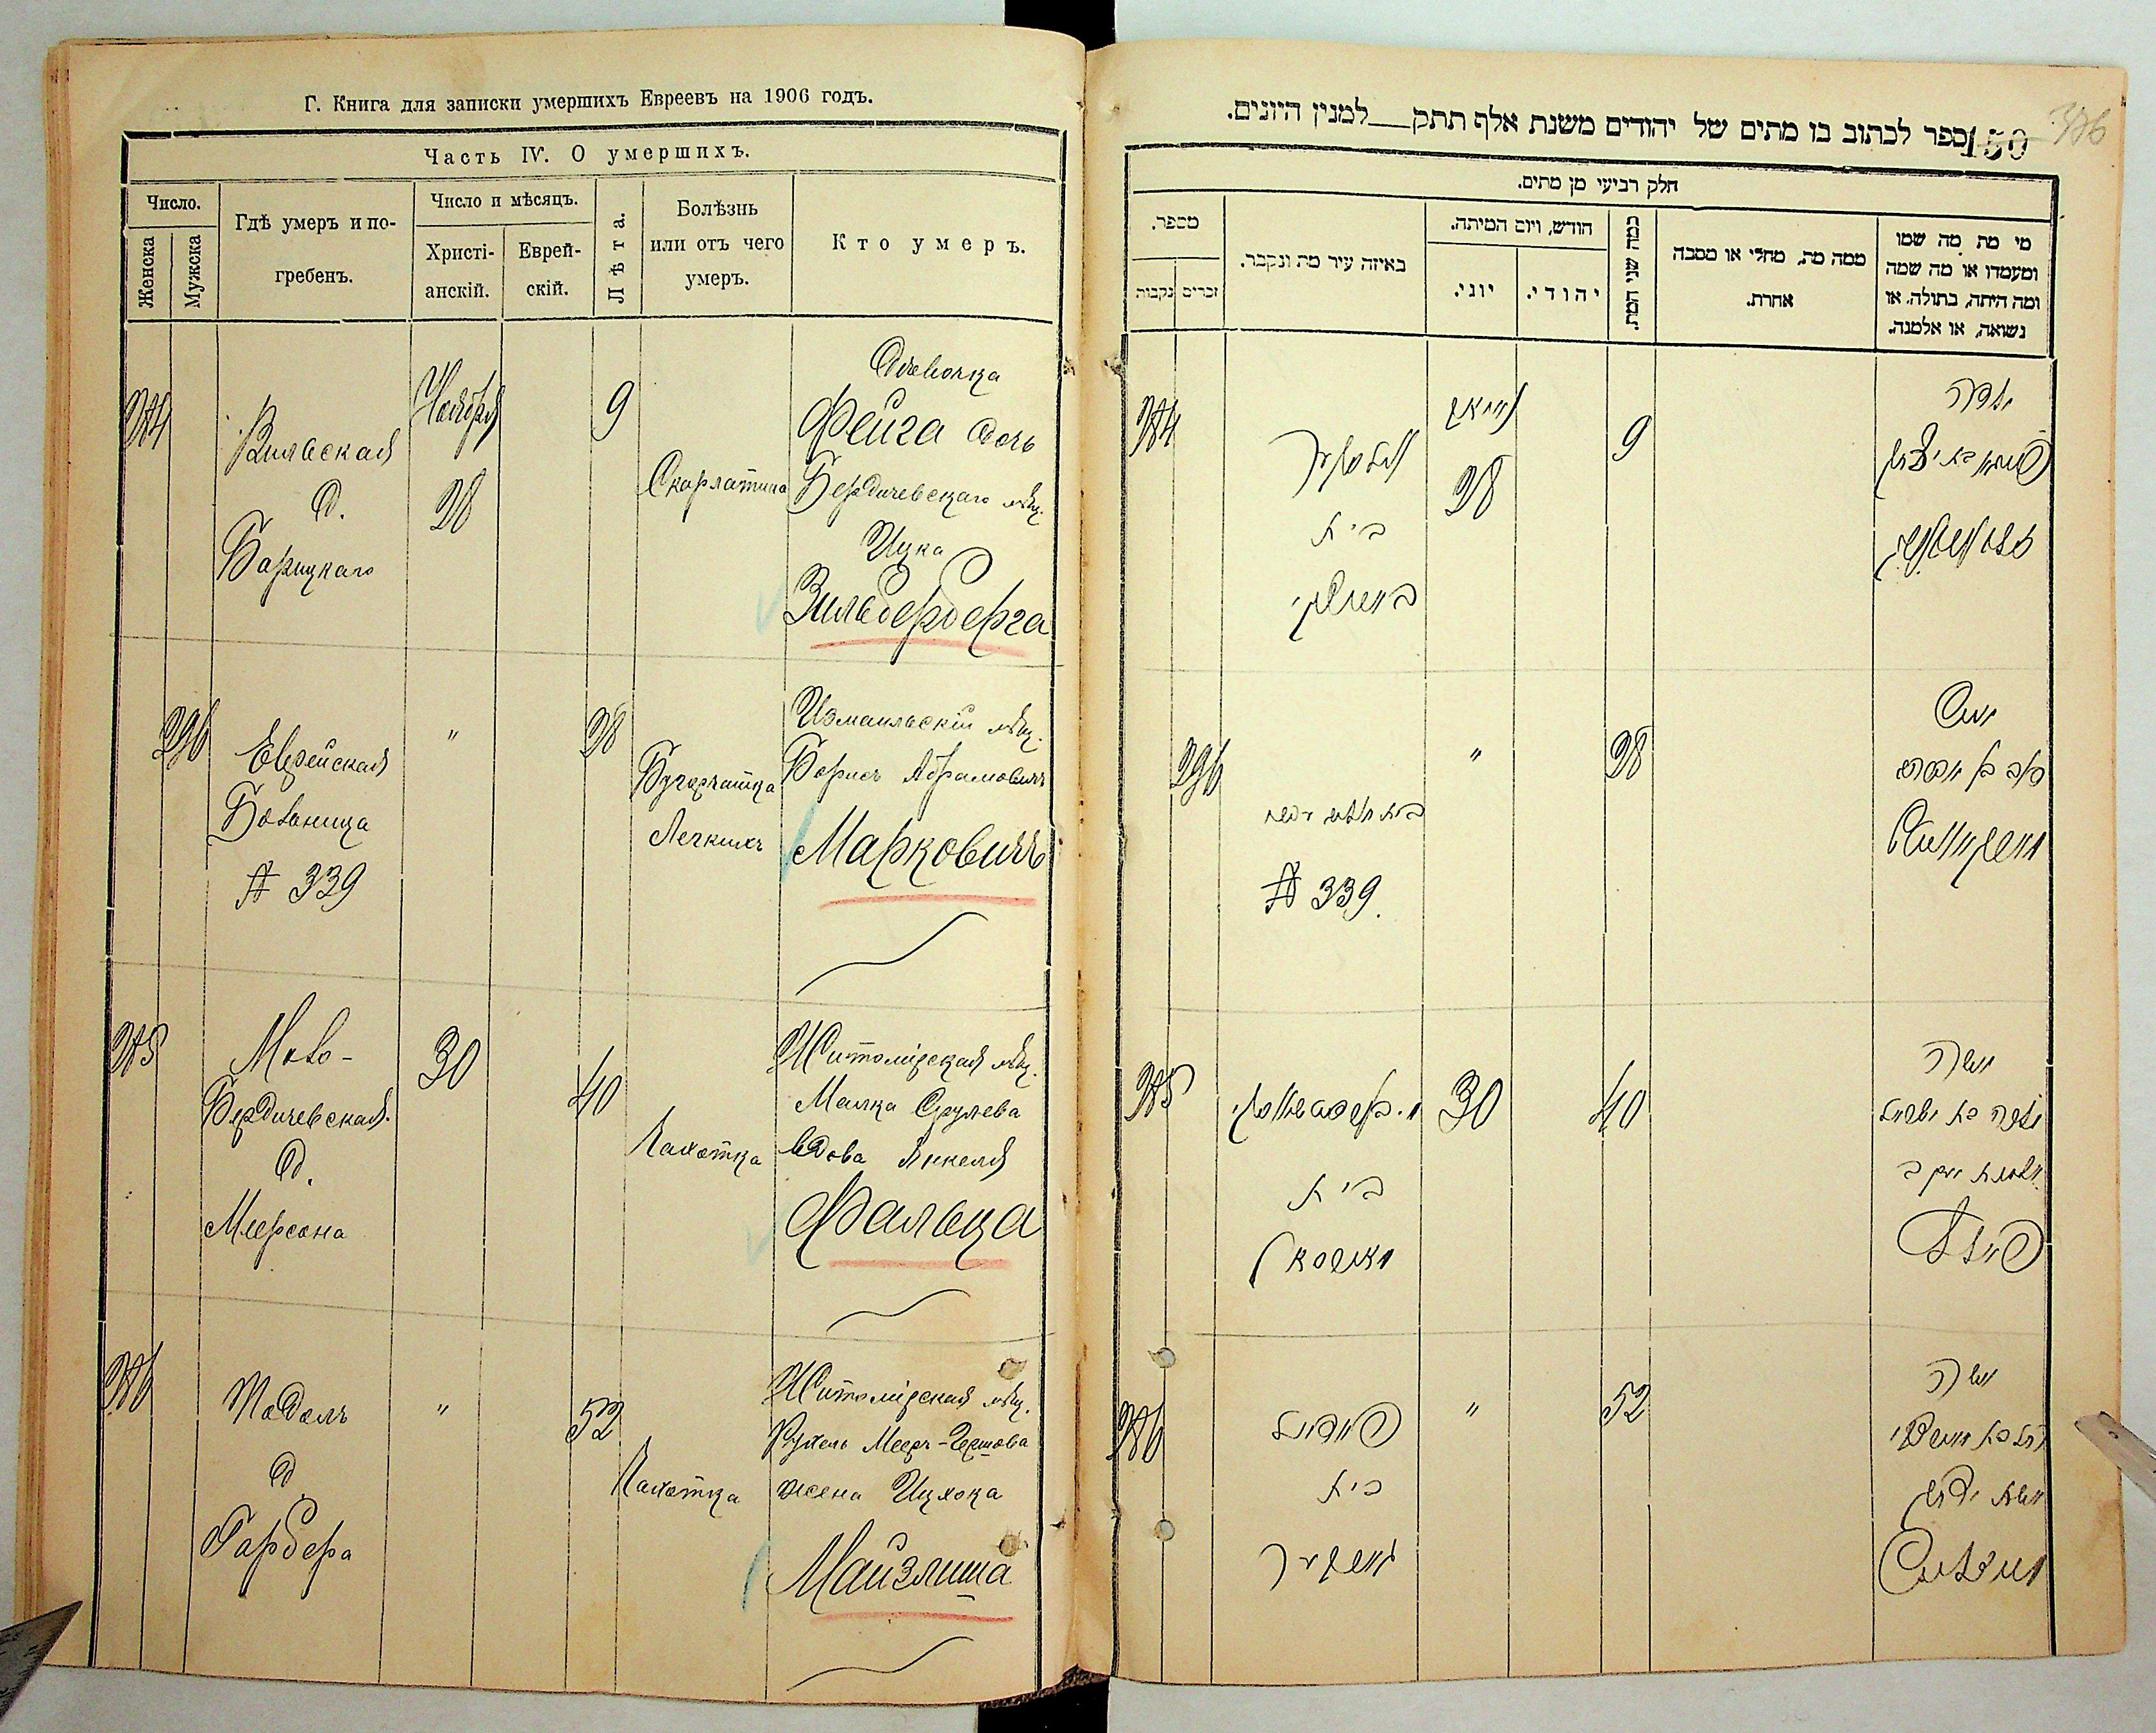 Г. Книга для записки умершихъ Евреевъ на 1906 годъ.
Часть IV. О умершихъ.
Число.
Женска
Мужска
Гдѣ умеръ и по-
гребенъ.
Число и мѣсяцъ.
Христі-
анскій.
Еврей-
скій.
Лѣта.
Болѣзнь
или отъ чего
умеръ.
Кто умеръ.
274
Вильская
д.
Барицкаго
Ноября
28
9
Скарлатина
Дѣвочка
Фейга дочь
Бердичевскаго мѣщ.
Ицка
Зильберберга
296
Еврейская
Больница
№ 339
"
28
Бугорчатка
Легкихъ
Измаильскій мѣщ.
Борисъ Абрамовичъ
Марковичъ
275
Ново-
Бердичевская
д.
Меерсона
30
40
Чахотка
Житомірская мѣщ.
Малка Срулева
вдова Янкеля
Фальца
276
Подолъ
д.
Гарбера
"
52
Чахотка
Житомірская мѣщ.
Рухель Меер-Гершова
жена Ицхока
Майзлиша
ספר לכתוב בו מתים של יהודים משנת אלף תתק___למנין היונים.
150
376
חלק רביעי מן מתים.
מספר.
נקבות
זכרים
באיזה עיר מת ונקבר.
חודש, ויום המיתה.
יוני.
יהודי.
כמה שני המת.
ממה מת, מחלי או מסבה
אחרת.
מי מת מה שמו
ומעמדו או מה שמה
ומה היתה, בתולה, או
נשואה, או אלמנה.
274
בית
28
9
ילדה
זילבערבערג
296
№ 339.
"
28
איש
מארקאוויטש
275
בית
מאירסאן
30
40
אשה
פאלץ
276
פאדאל
בית
גארבער
"
52
אשה
מייזליש